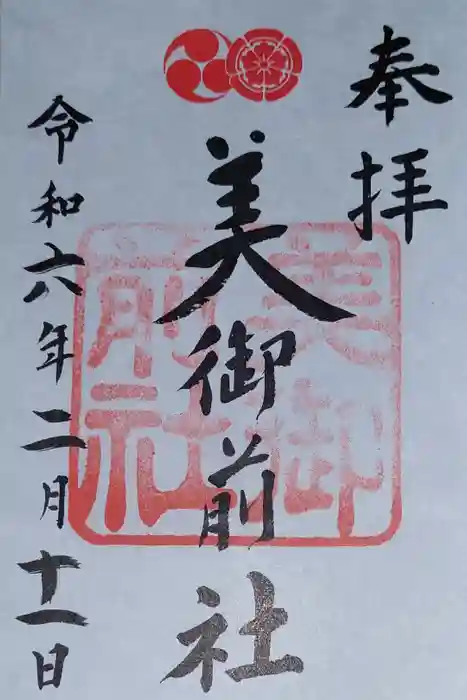 奉拝
美御前社
令和六年二月十一日
美御前社